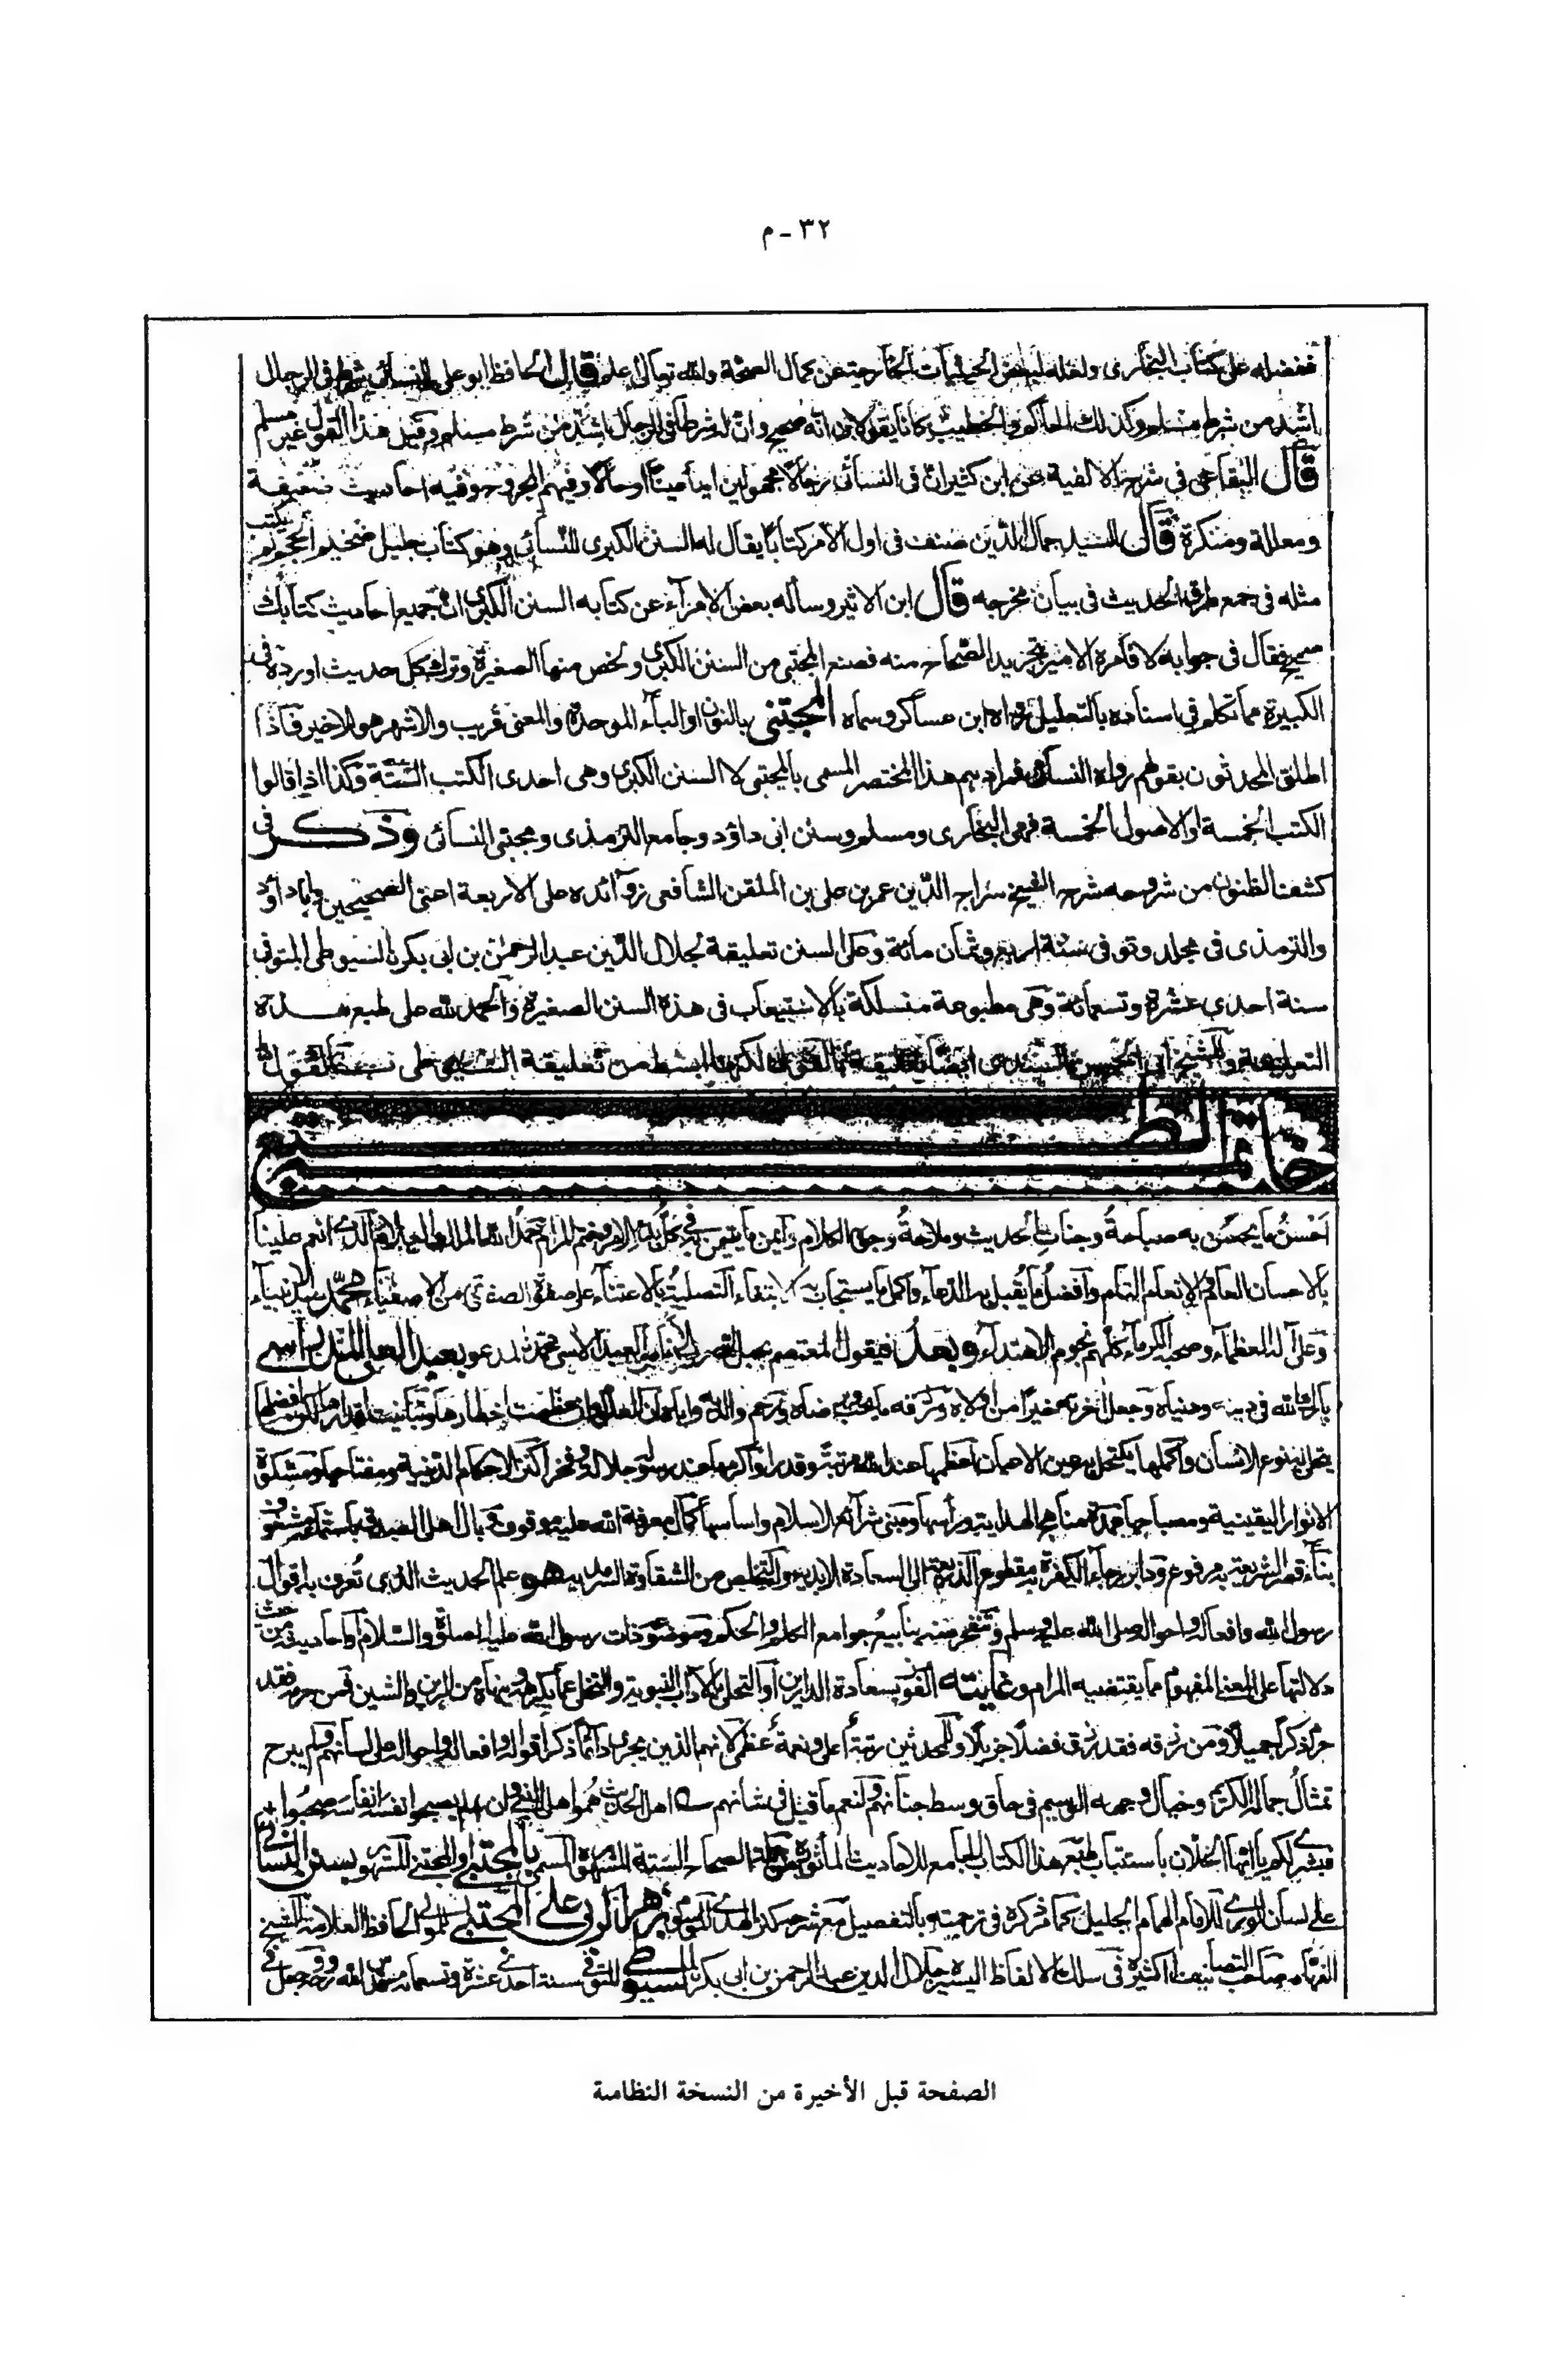 ٣٢ - م
ففضله على كتاب البخارى ولعله لبعض الحيثيات الخارجة عن كمال الصحة والله تعالى اعلم قال الحافظ ابو على للنسائى شرط فى الرجال
اشد من شرط مسلم وكذلك الحاكم والخطيب كانا يقولان انه صحيح وان له شرطا فى الرجال اشد من شرط مسلم وقيل هذا القول غير مسلم
قال البقاعى فى شرح الالفية عن ابن كثير ان فى النسائى رجالا مجهولين اما عينا او حالا وفيهم المجروح وفيه احاديث ضعيفة
ومعللة ومنكرة قال السيد جمال الدين صنف فى اول الامر كتابا يقال له السنن الكبرى للنسائى وهو كتاب جليل ضخيم الحجم لم يكتب
مثله فى جمع طرق الحديث فى بيان مخرجه قال ابن الاثير وساله بعض الامراء عن كتابه السنن الكبرى ان جميع احاديث كتابك
صحيح فقال فى جوابه لا فامره الامير بتجريد الصحاح منه فصنع المجتبى من السنن الكبرى ولخص منها الصغيرة وترك كل حديث اورده فى
الكبيرة مما تكلم فى اسناده بالتعليل رواه ابن عساكر وسماه المجتنى بالنون او الباء الموحدة والمعنى قريب والاشهر هو الاخير فاذا
اطلق المحدثون بقولهم رواه النسائى فمرادهم هذا المختصر المسمى بالمجتبى لا السنن الكبرى وهى احدى الكتب الستة وكذا اذا قالوا
الكتب الخمسة او الاصول الخمسة فهى البخارى ومسلم وسنن ابى داؤد وجامع الترمذى ومجتبى النسائى وذكر فى
كشف الظنون من شروحه شرح الشيخ سراج الدين عمر بن على بن الملقن الشافعى زوائده على الاربعة اعنى الصحيحين وابا داؤد
والترمذى فى مجلد وتوفى سنة اربع وثمان مائة وعلى السنن تعليقة لجلال الدين عبد الرحمن بن ابى بكر السيوطى المتوفى
سنة احدى عشرة وتسعمائة وهى مطبوعة منسلكة بالاستيعاب فى هذه السنن الصغيرة والحمد لله على طبع هذه
التعليقة وللشيخ ابى الحسن السندى ايضا تعليقة لكنها ابسط من تعليقة السيوطى على
خاتمة الطبع
اَحْسَنُ ما يحسُن به صباحةُ وجنات الحديث وملاحةُ وجوه الكلام وايمن ما يتيمن به فى كل بدء الامر وختم المرام حمدُ الله الذى انعم علينا
بالاحسان العام والانعام التام وافضلُ ما يُقبل به الدعاء واكمل ما يستجاب به الابتغاء التصليةُ بالاعتناء على صفوة الصفوة من الاصفياء محمّد سيد الانبياء
وعلى آله العظماء وصحبه الكرماء كلهم نجوم الاهتداء وبعد فيقول المعتصم بحبل الله العبد الاسى محمد المدعو بعبد العلى المدراسى
فى دينه ودنياه وجعل اخرته خيرا من اولاه ورزقه ما يحبه ويرضاه ورحم والديه واياه ان العلوم وان عظمت اخطارها وتباينت اقدارها لكن افضلها
يتحلى به نوع الانسان واكملها يكتحل به عين الاعيان اعظمها عند الله مرتبة وقدرا واكرمها عند رسوله جلالا وفخرا كنز الاحكام الدينية ومفتاحها ومشكوة
الانوار اليقينية ومصباحها عمدة مناهج الهداية وراسها ومبنى شرائع الاسلام واساسها كمال معرفة الله عليه موقوف وبال اهل الصدق باستماعه مشغوف
بناء قصر الشريعة به مرفوع ودابر رجاء الكفرة به مقطوع الذريعة الى السعادة الابدية والتخلص من الشقاوة السرمدية هو علم الحديث الذى تُعرف به اقوال
رسول الله وافعاله واحواله صلى الله عليه وسلم وتتفجر منه ينابيعُ جوامع الكلم والحكم وموضوعه ذات رسول الله عليه الصلوة والسلام واحاديثه من حيث
دلالتها على المعنى المفهوم مما يقتضيه المرام وغايته الفوز بسعادة الدارين او التحلى بالآداب النبوية والتخلى عما يكرهه وينهاه من الرين والشين فمن حرمه فقد
حرم ذكرا جميلا ومن رزقه فقد رزق فضلا جزيلا وللمحدثين رتبةٌ اعلى ونعمةٌ عظمى لانهم الذين يجرى دائما ذكر اقواله وافعاله واحواله على لسانهم ولم يبرح
تمثالُ جماله الكريم وخيال وجهه الوسيم فى حاق وسط جنانهم ولنعم ما قيل فى شانهم اهل الحديث هُموا اهل النبى وان لم يصحبوا نفسه انفاسه صحبوا
فبشرى لكم يا ايها الخلان باستتباب طبع هذا الكتاب الجامع للاحاديث الماثورة الصحاح الستة المشهورة المسمى بالمجتبى والمجتنى المشهور بسنن النسائى
على لسان الورى للامام الهمام الجليل كما مر ذكره فى ترجمته بالتفصيل مع شرحه كنز الهدى الموسوم بزهر الربى على المجتبى للمولى الحافظ العلامة الشيخ
الفهامة صاحب التصانيف الكثيرة فى سلك الالفاظ اليسيرة جلال الدين عبد الرحمن بن ابى بكر السيوطى المتوفى سنة احدى عشرة وتسعمائة وجعل
الصفحة قبل الأخيرة من النسخة النظامية